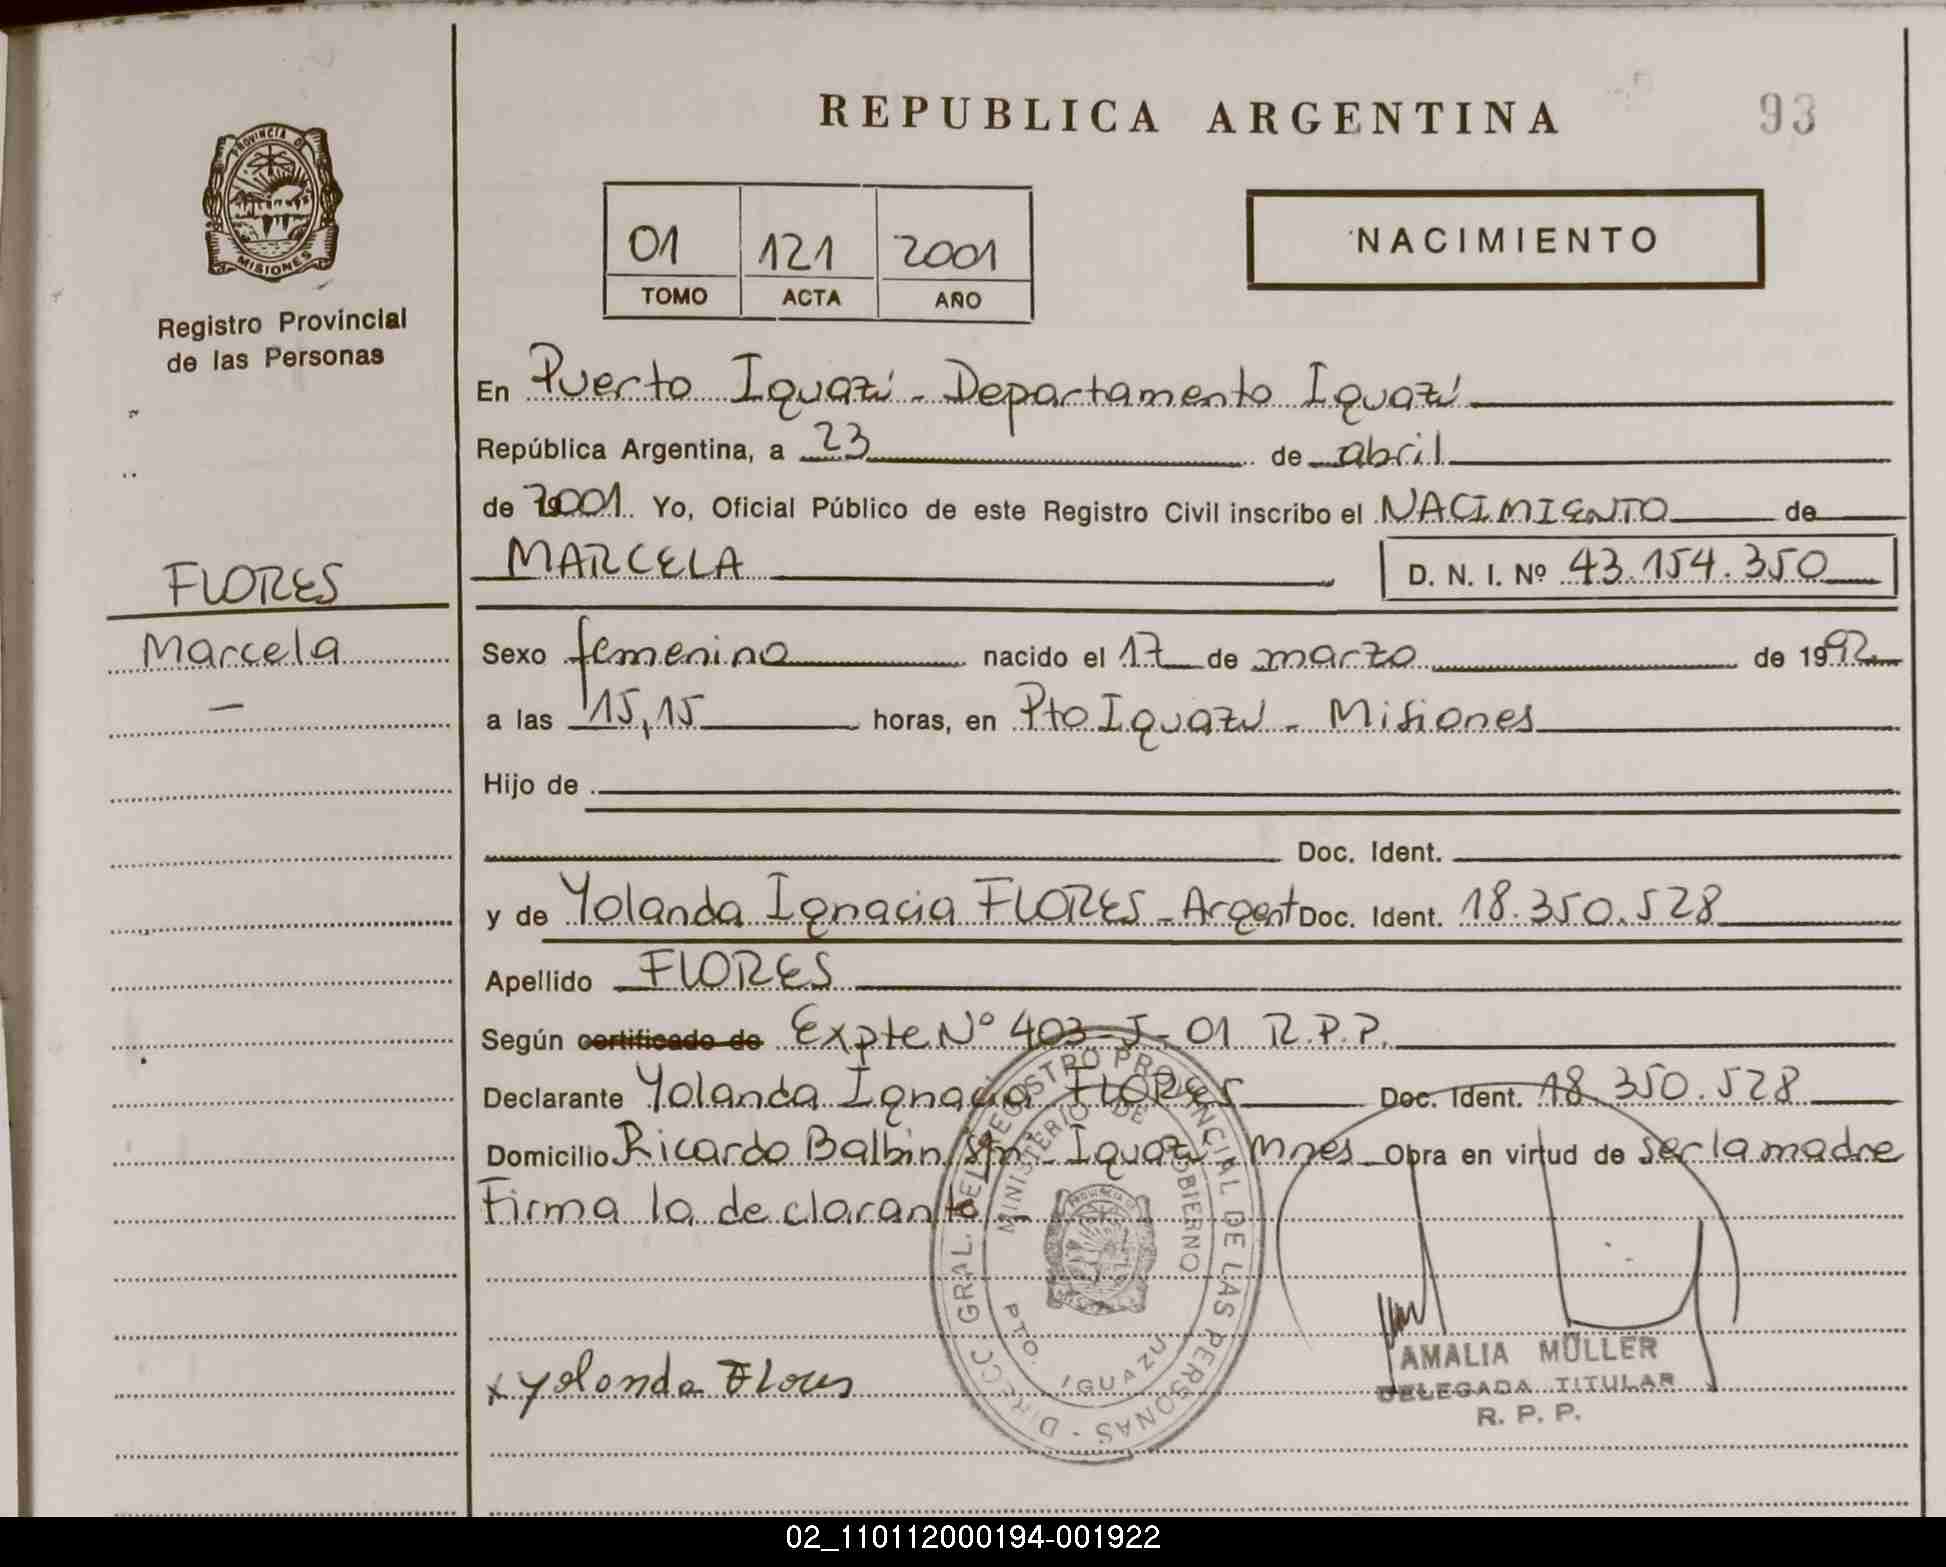 REPUBLICA ARGENTINA
93
PROVINCIA DE
MISIONES
Registro Provincial
de las Personas
01 121 2001
TOMO ACTA AÑO
NACIMIENTO
En Puerto Iguazú - Departamento Iguazú
República Argentina, a 23 de abril
de 2001. Yo, Oficial Público de este Registro Civil inscribo el NACIMIENTO de
MARCELA D. N. I. Nº 43.154.350
FLORES
Marcela
Sexo femenino nacido el 17 de marzo de 1992
a las 15,15 horas, en Pto Iguazú - Misiones
Hijo de
Doc. Ident.
y de Yolanda Ignacia FLORES - Argent Doc. Ident. 18.350.528
Apellido FLORES
Según certificado de Expte Nº 403-J-01 R.P.P.
Declarante Yolanda Ignacia FLORES Doc. Ident. 18.350.528
Domicilio Ricardo Balbin s/n - Iguazú - Mnes Obra en virtud de ser la madre
Firma la declarante
DIRECC GRAL. DEL REGISTRO PROVINCIAL DE LAS PERSONAS
MINISTERIO DE GOBIERNO
PTO. IGUAZU
x Yolanda Flores
AMALIA MÜLLER
DELEGADA TITULAR
R. P. P.
02_110112000194-001922